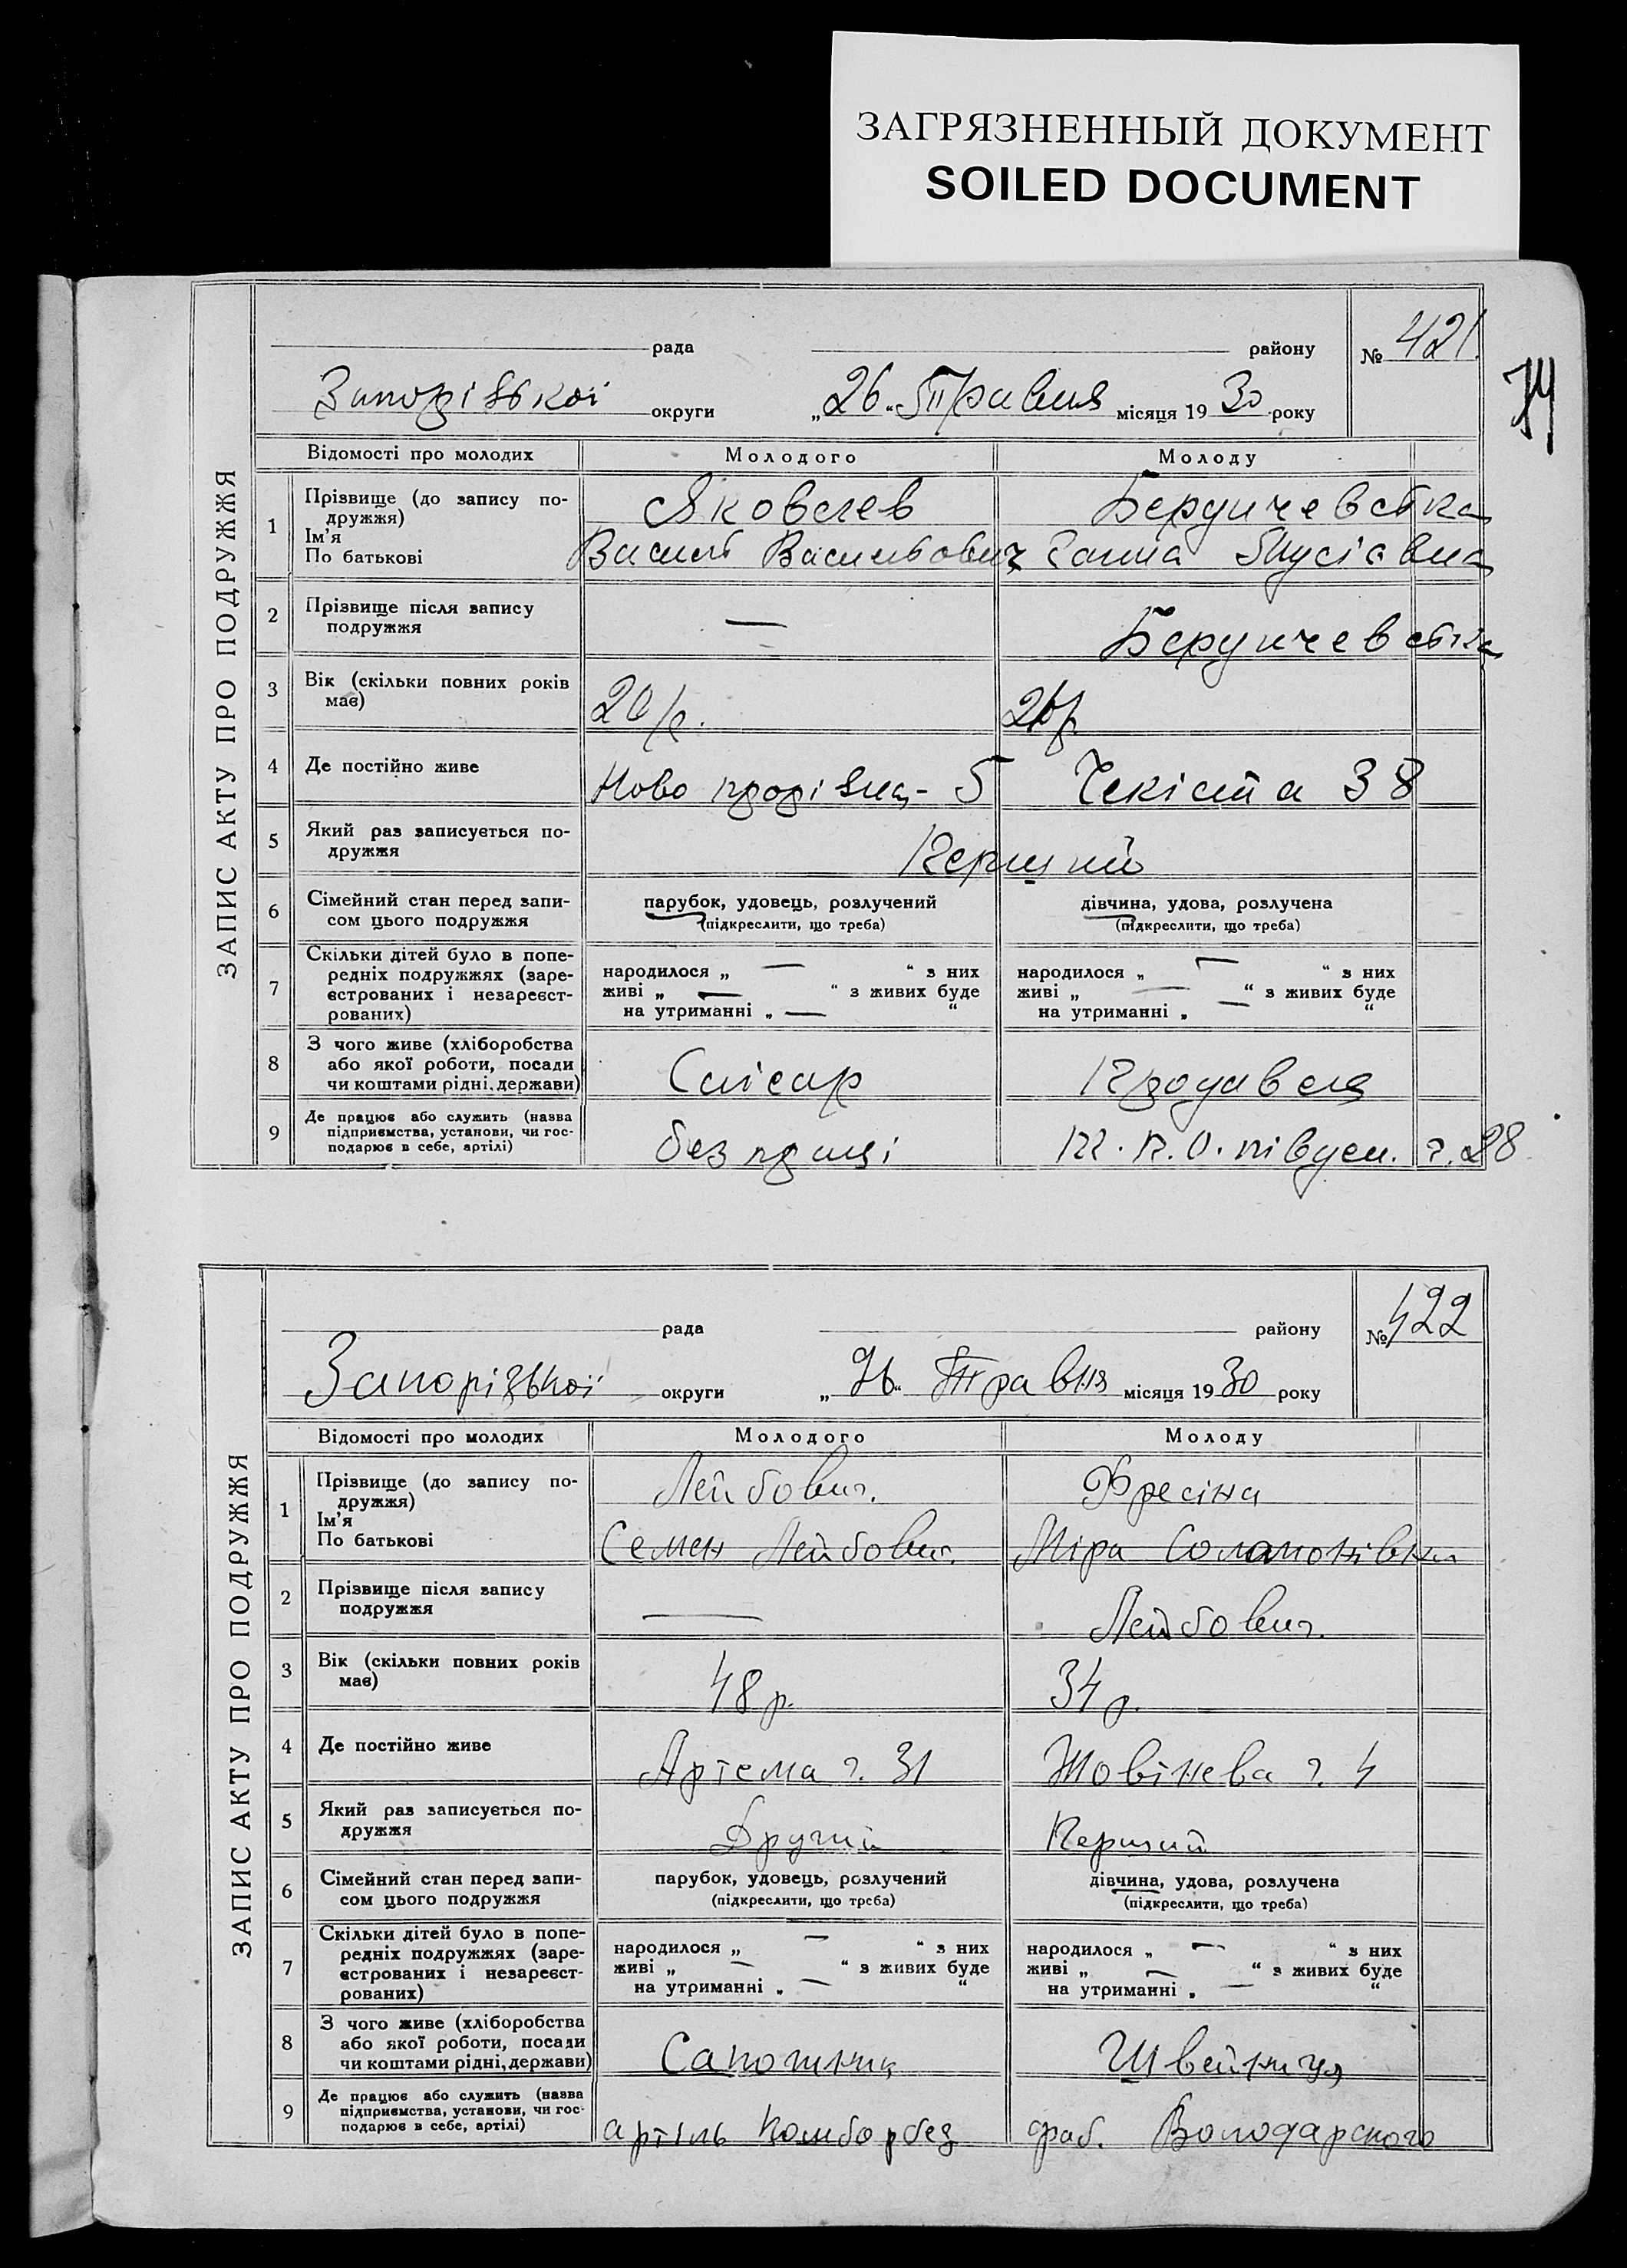 ЗАГРЯЗНЕННЫЙ ДОКУМЕНТ
SOILED DOCUMENT
ЗАПИС АКТУ ПРО ПОДРУЖЖЯ
рада району № 421.
Запорізької округи „26“ Травня місяця 1930 року
Відомості про молодих Молодого Молоду
1 Прізвище (до запису по-
дружжя)
Ім'я
По батькові
Яковлев Бердичевська
Василь Васильович Ганна
2 Прізвище після запису
подружжя
— Бердичевська
3 Вік (скільки повних років
має)
20 р. 20 р.
4 Де постійно живе
Чекіста 38
5 Який раз записується по-
дружжя
Перший
6 Сімейний стан перед запи-
сом цього подружжя
парубок, удовець, розлучений
(підкреслити, що треба)
дівчина, удова, розлучена
(підкреслити, що треба)
7 Скільки дітей було в попе-
редніх подружжях (заре-
єстрованих і незареєст-
рованих)
народилося „ — “ з них
живі „ — “ з живих буде
на утриманні „ — “
народилося „ — “ з них
живі „ — “ з живих буде
на утриманні „ — “
8 З чого живе (хліборобства
або якої роботи, посади
чи коштами рідні, держави)
Слісар Продавця
9 Де працює або служить (назва
підприємства, установи, чи гос-
подарює в себе, артілі)
без праці ч. 28
ЗАПИС АКТУ ПРО ПОДРУЖЖЯ
рада району № 422
Запорізької округи „26“ Травня місяця 1930 року
Відомості про молодих Молодого Молоду
1 Прізвище (до запису по-
дружжя)
Ім'я
По батькові
Лейбович. Фресіна
Семен Лейбович. Міра Соломонівна
2 Прізвище після запису
подружжя
— Лейбович.
3 Вік (скільки повних років
має)
48 р. 34 р.
4 Де постійно живе
Артема ч. 31 ч. 4
5 Який раз записується по-
дружжя
Другий Перший
6 Сімейний стан перед запи-
сом цього подружжя
парубок, удовець, розлучений
(підкреслити, що треба)
дівчина, удова, розлучена
(підкреслити, що треба)
7 Скільки дітей було в попе-
редніх подружжях (заре-
єстрованих і незареєст-
рованих)
народилося „ — “ з них
живі „ — “ з живих буде
на утриманні „ — “
народилося „ — “ з них
живі „ — “ з живих буде
на утриманні „ — “
8 З чого живе (хліборобства
або якої роботи, посади
чи коштами рідні, держави)
Сапожник Швейниця
9 Де працює або служить (назва
підприємства, установи, чи гос-
подарює в себе, артілі)
артіль Комборбез фаб. Володарского